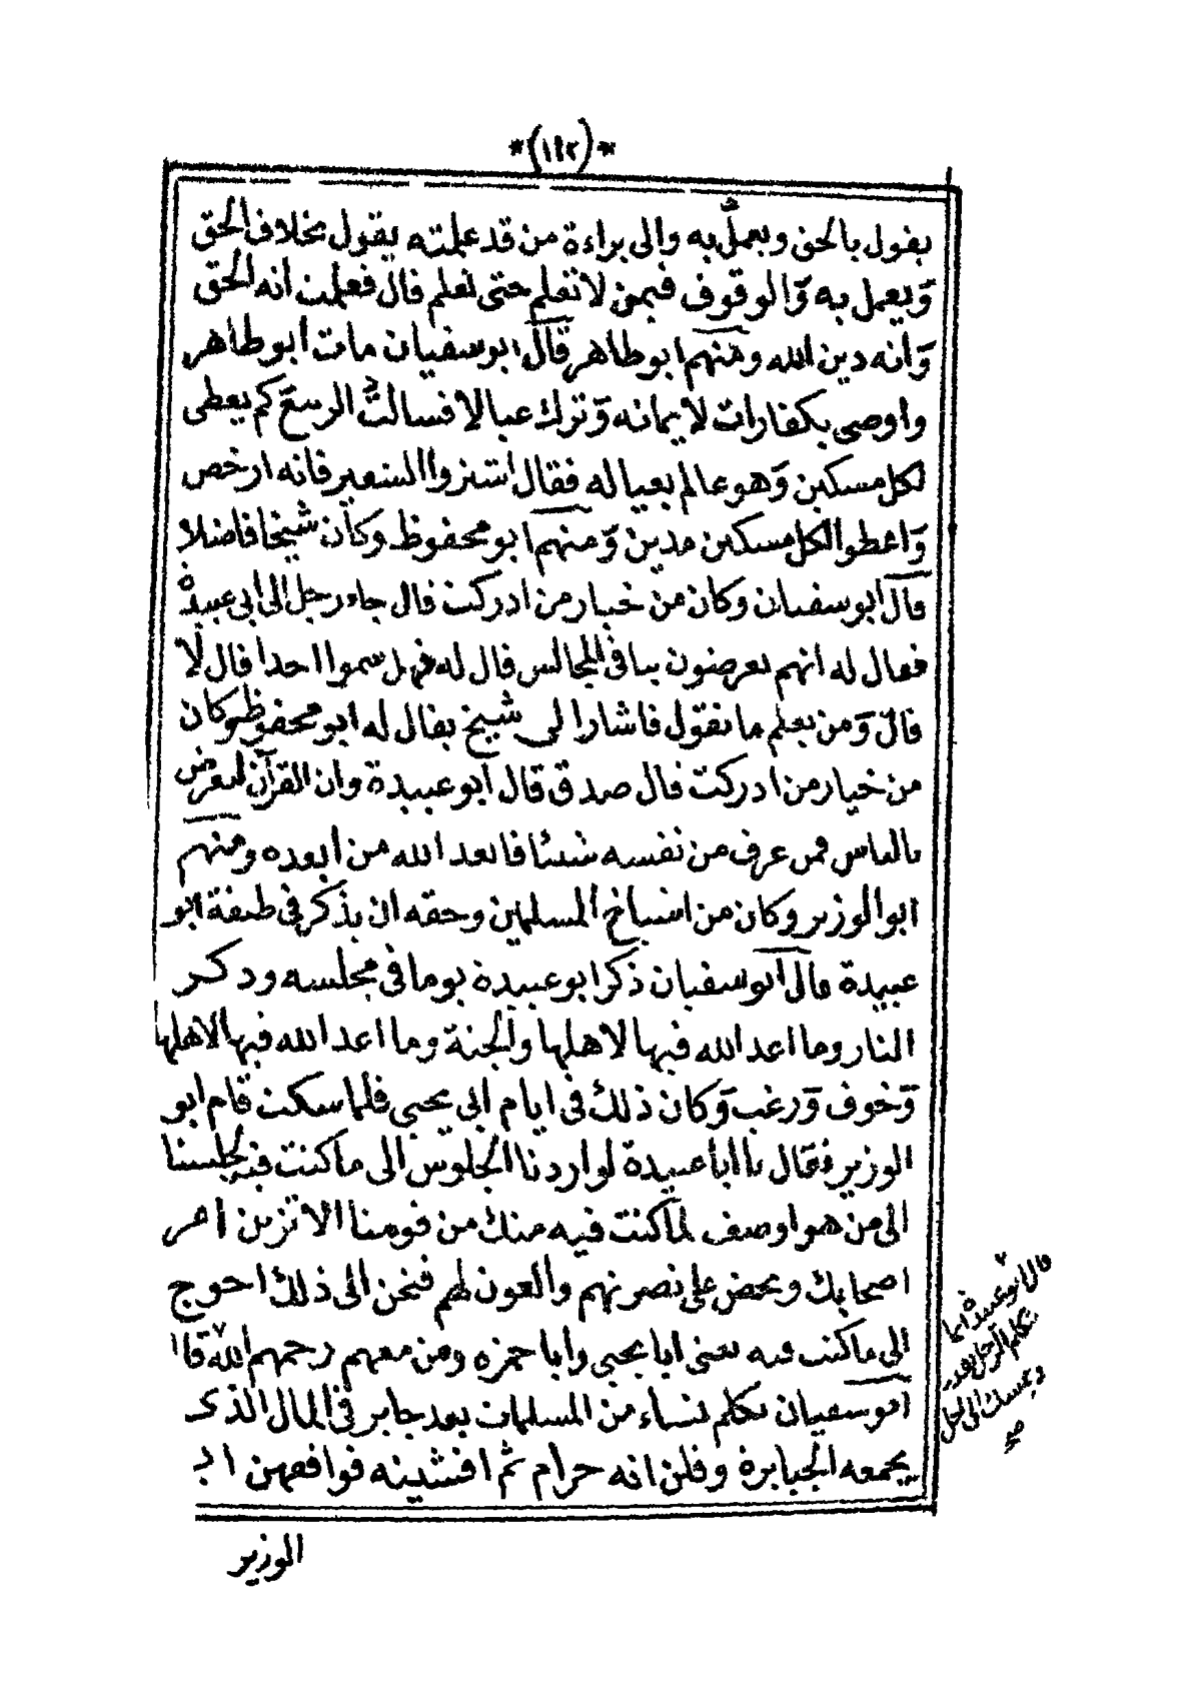 *(١١٢)*
يقول بالحق ويعمل به والى براءة من قد علمته يقول بخلاف الحق
وَيعمل به وَالوقوف فيمن لا تعلم حتى تعلم قال فعلمت انه الحق
وَانه دين الله ومنهم ابو طاهر قال ابو سفيان مات أبو طاهر
واوصى بكفارات لايمانه وَترك عيالا فسالت الربيع كم يعطى
لكل مسكين وَهو عالم بعياله فقال اشتروا الشعير فانه ارخص
وَاعطوا لكل مسكين مدين وَمنهم ابو محفوظ وكان شيخا فاضلا
قال ابو سفيان وكان من خيار من ادركت قال جاء رجل الى ابي عبيدة
فقال له انهم يعرضون بنا في المجالس قال له فهل سموا احدا قال لا
قال وَمن يعلم ما نقول فاشار الى شيخ يقال له ابو محفوظ وكان
من خيار من ادركت قال صدق قال ابو عبيدة وان القرآن ليعرض
بالناس فمن عرف من نفسه شيئا فابعد الله من ابعده ومنهم
ابو الوزير وكان من اشياخ المسلمين وحقه ان يذكر في طبقة ابو
عبيدة قال ابو سفيان ذكر ابو عبيدة يوما في مجلسه وذكر
النار وما اعد الله فيها لاهلها والجنة وما اعد الله فيها لاهلها
وَخوف وَرغب وَكان ذلك في ايام ابي يحيى فلما سكت قام ابو
الوزير فقال يا ابا عبيدة لو اردنا الجلوس الى ما كنت فيه لجلسنا
الى من هو اوصف لما كنت فيه منك من قومنا الا تزين امر
اصحابك وتحض على نصرتهم والعون لهم فنحن الى ذلك احوج
الى ما كنت فيه يعنى ابا يحيى وابا حمزه ومن معهم رحمهم الله قال
ابو سفيان تكلم نساء من المسلمات بعد جابر في المال الذى
يجمعه الجبابرة وقلن انه حرام ثم افشينه فوافقهن ابـ
الوزير
قال ابو عبيدة انما
يتكلم الرجل بقدر